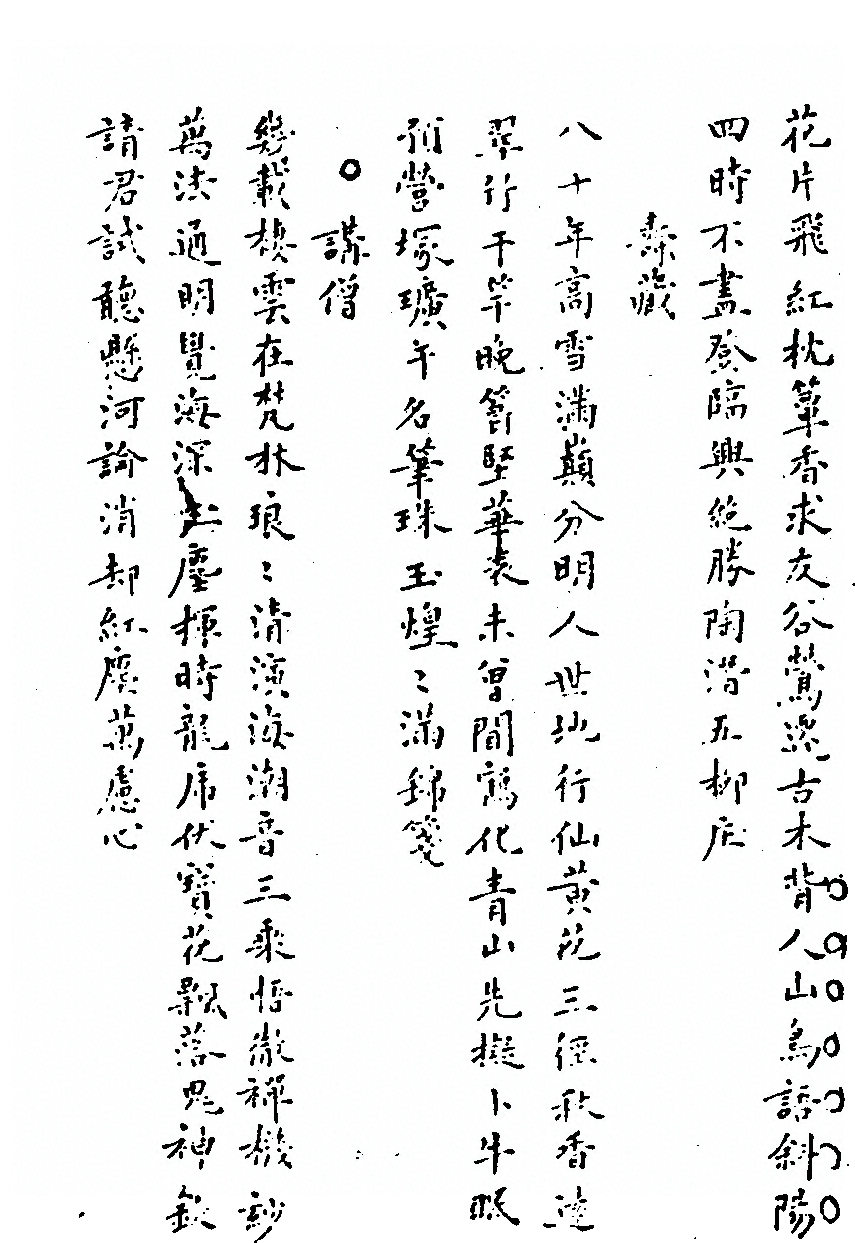 花片飛紅枕簟香求友谷鶯遷古木背人山鳥語斜陽
四時不盡登臨興絶勝陶潛五柳庄
壽藏
八十年高雪滿巔分明人世地行仙黄花三徑秋香遠
翠竹千竿晚節堅華表未曾聞鶴化青山先擬卜牛眠
預營塚壙午名筆珠玉煌〻滿錦箋
○講僧
幾載棲雲在梵林琅〻清演海潮音三乘悟徹禪機妙
萬法通明覺海深玉麈揮時龍虎伏寶花飄落鬼神欽
請君試聽懸河論消却紅塵萬慮心